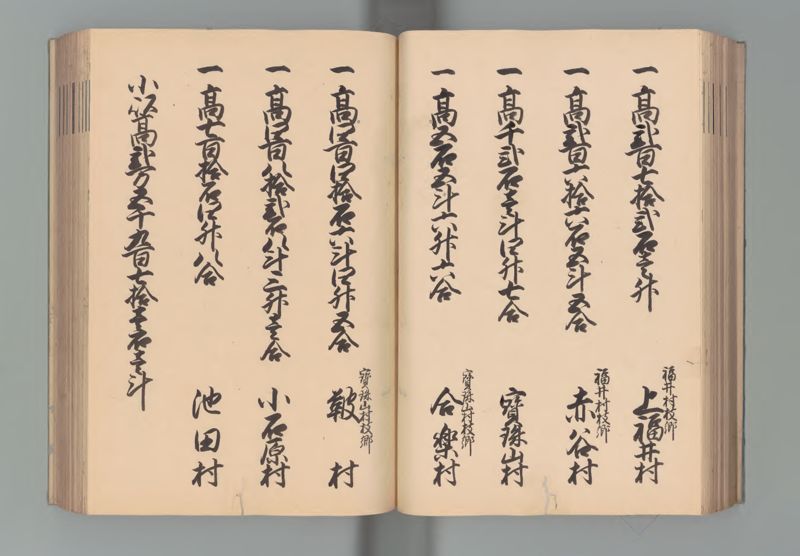 一高貳百七拾貳石壹升 福井村枝郷 上福井村
一高貳百六拾六石五斗五合 福井村枝郷 赤谷村
一高千貳石壹斗四升七合 寶珠山村
一高五石五斗六升六合 寶珠山村枝郷 合樂村
一高四百四拾石六斗四升五合 寶珠山村枝郷 鞁村
一高四百八拾貳石八斗三升壹合 小石原村
一高七百拾石四升八合 池田村
小以高貳万五千九百七拾壹石壹斗